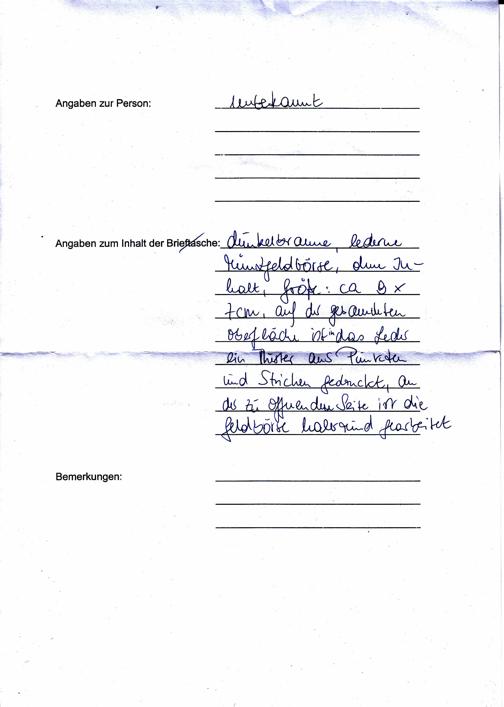 Angaben zur Person: unbekannt
Angaben zum Inhalt der Brieftasche: dunkelbraune, lederne
Münzgeldbörse, ohne In-
halt, Größe: ca 8 x
7cm, auf der gesamten
Oberfläche ist in das Leder
ein Muster aus Punkten
und Strichen gedruckt, an
der zu öffnenden Seite ist die
Geldbörse halbrund gearbeitet
Bemerkungen: